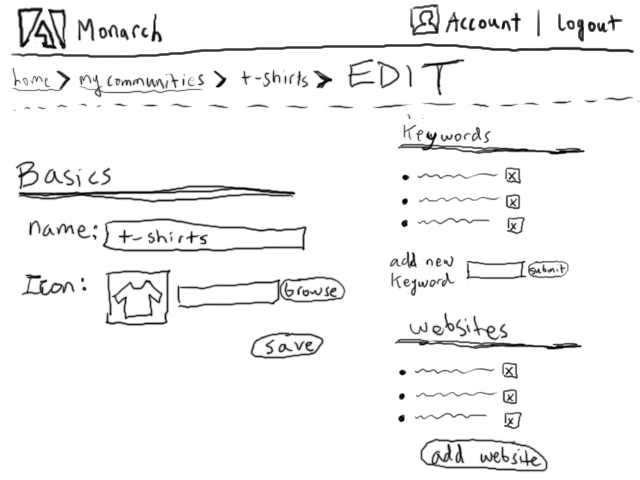 Monarch
Account | Logout
home > my communities > t-shirts > EDIT
Basics
name: t-shirts
Icon: browse
save
Keywords
x
x
x
add new
Keyword submit
websites
x
x
x
add website